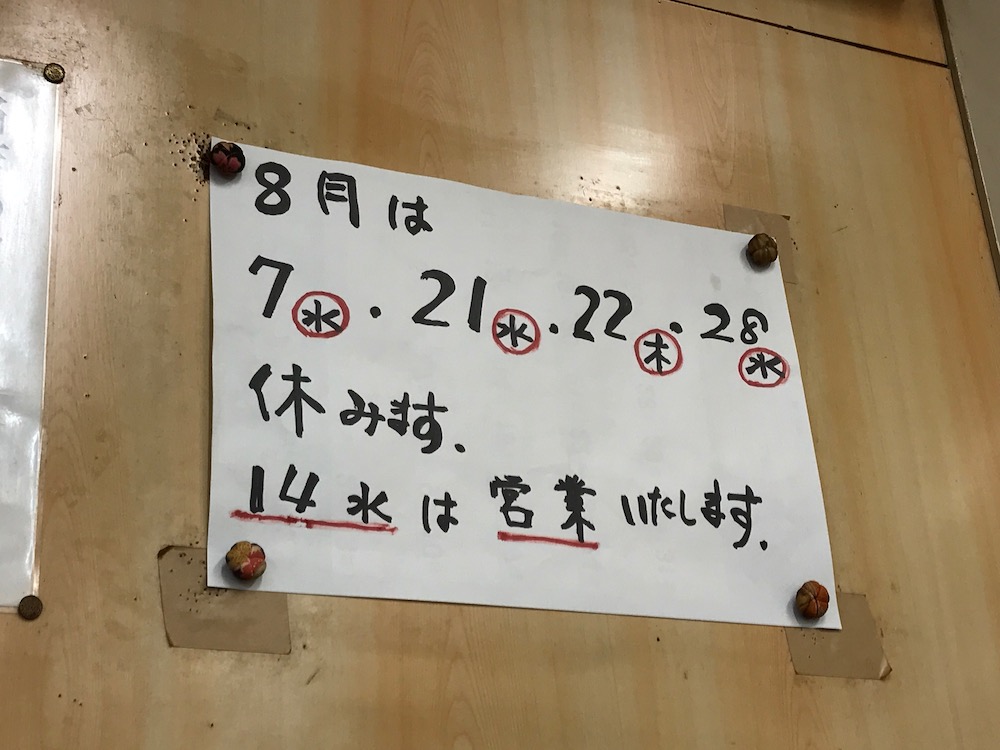 8月は
7㊌.21㊌.22㊍.28㊌
休みます.
14水は営業いたします.